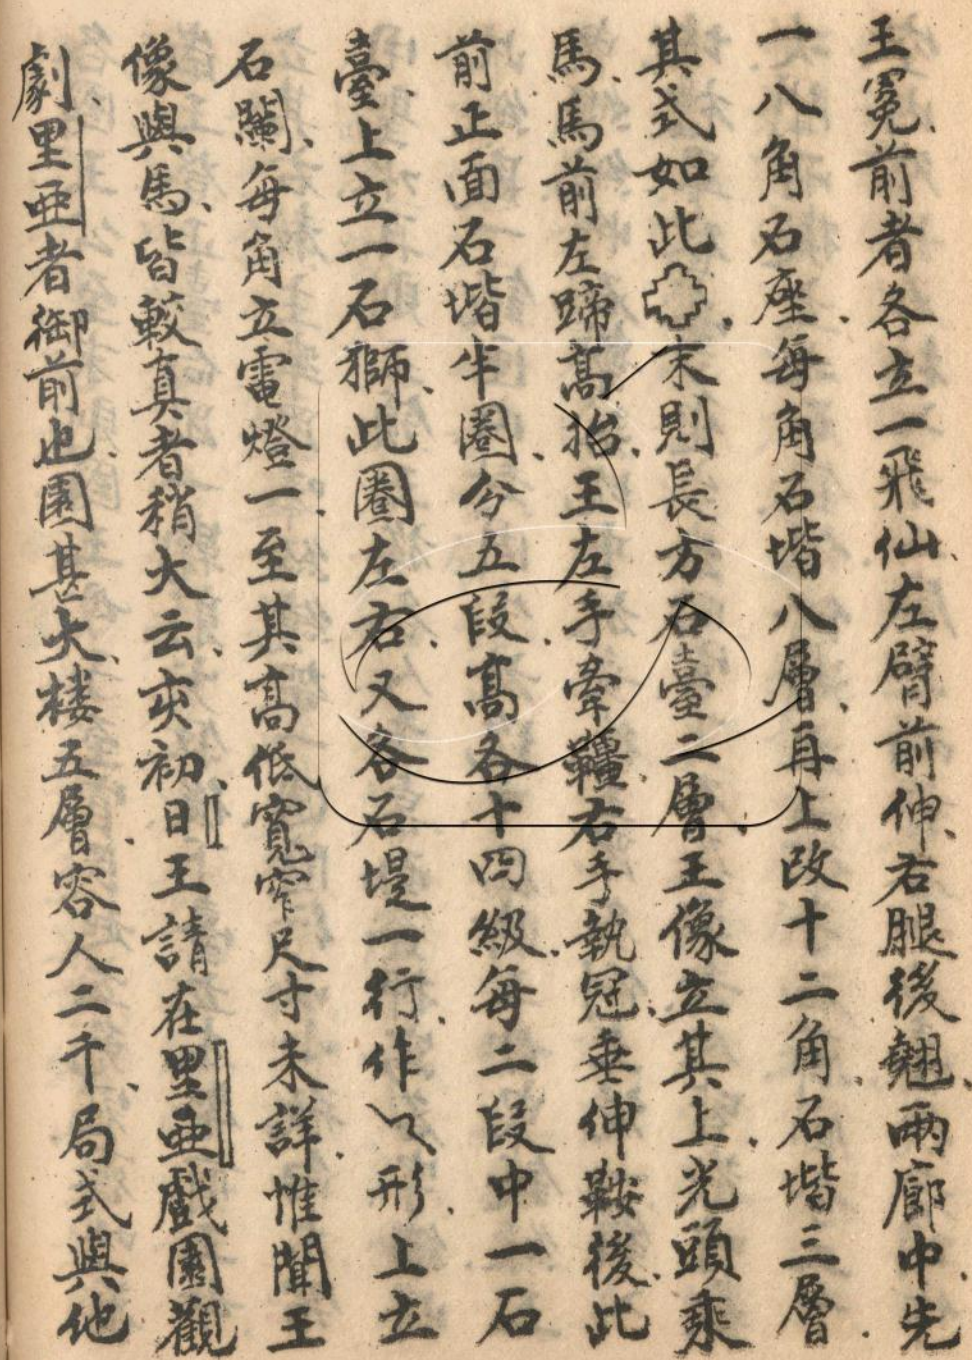 王冕前者各立一飛仙左臂前伸右腿後翹兩廊中先
一八角石座每角石堦八層再上改十二角石堦三層
其式如此末則長方石臺二層王像立其上光頭乘
馬馬前左蹄高抬王左手牽韁右手執冠垂伸鞍後此
前正面石堦半圈分五段高各十四級每二段中一石
臺上立一石獅此圈左右又各石堤一行作乀形上立
石闌每角立電燈一至其高低寬窄尺寸未詳惟聞王
像與馬皆較真者稍大云亥初日王請在里亜戲園觀
劇里亜者御前也園甚大楼五層容人二千局式與他